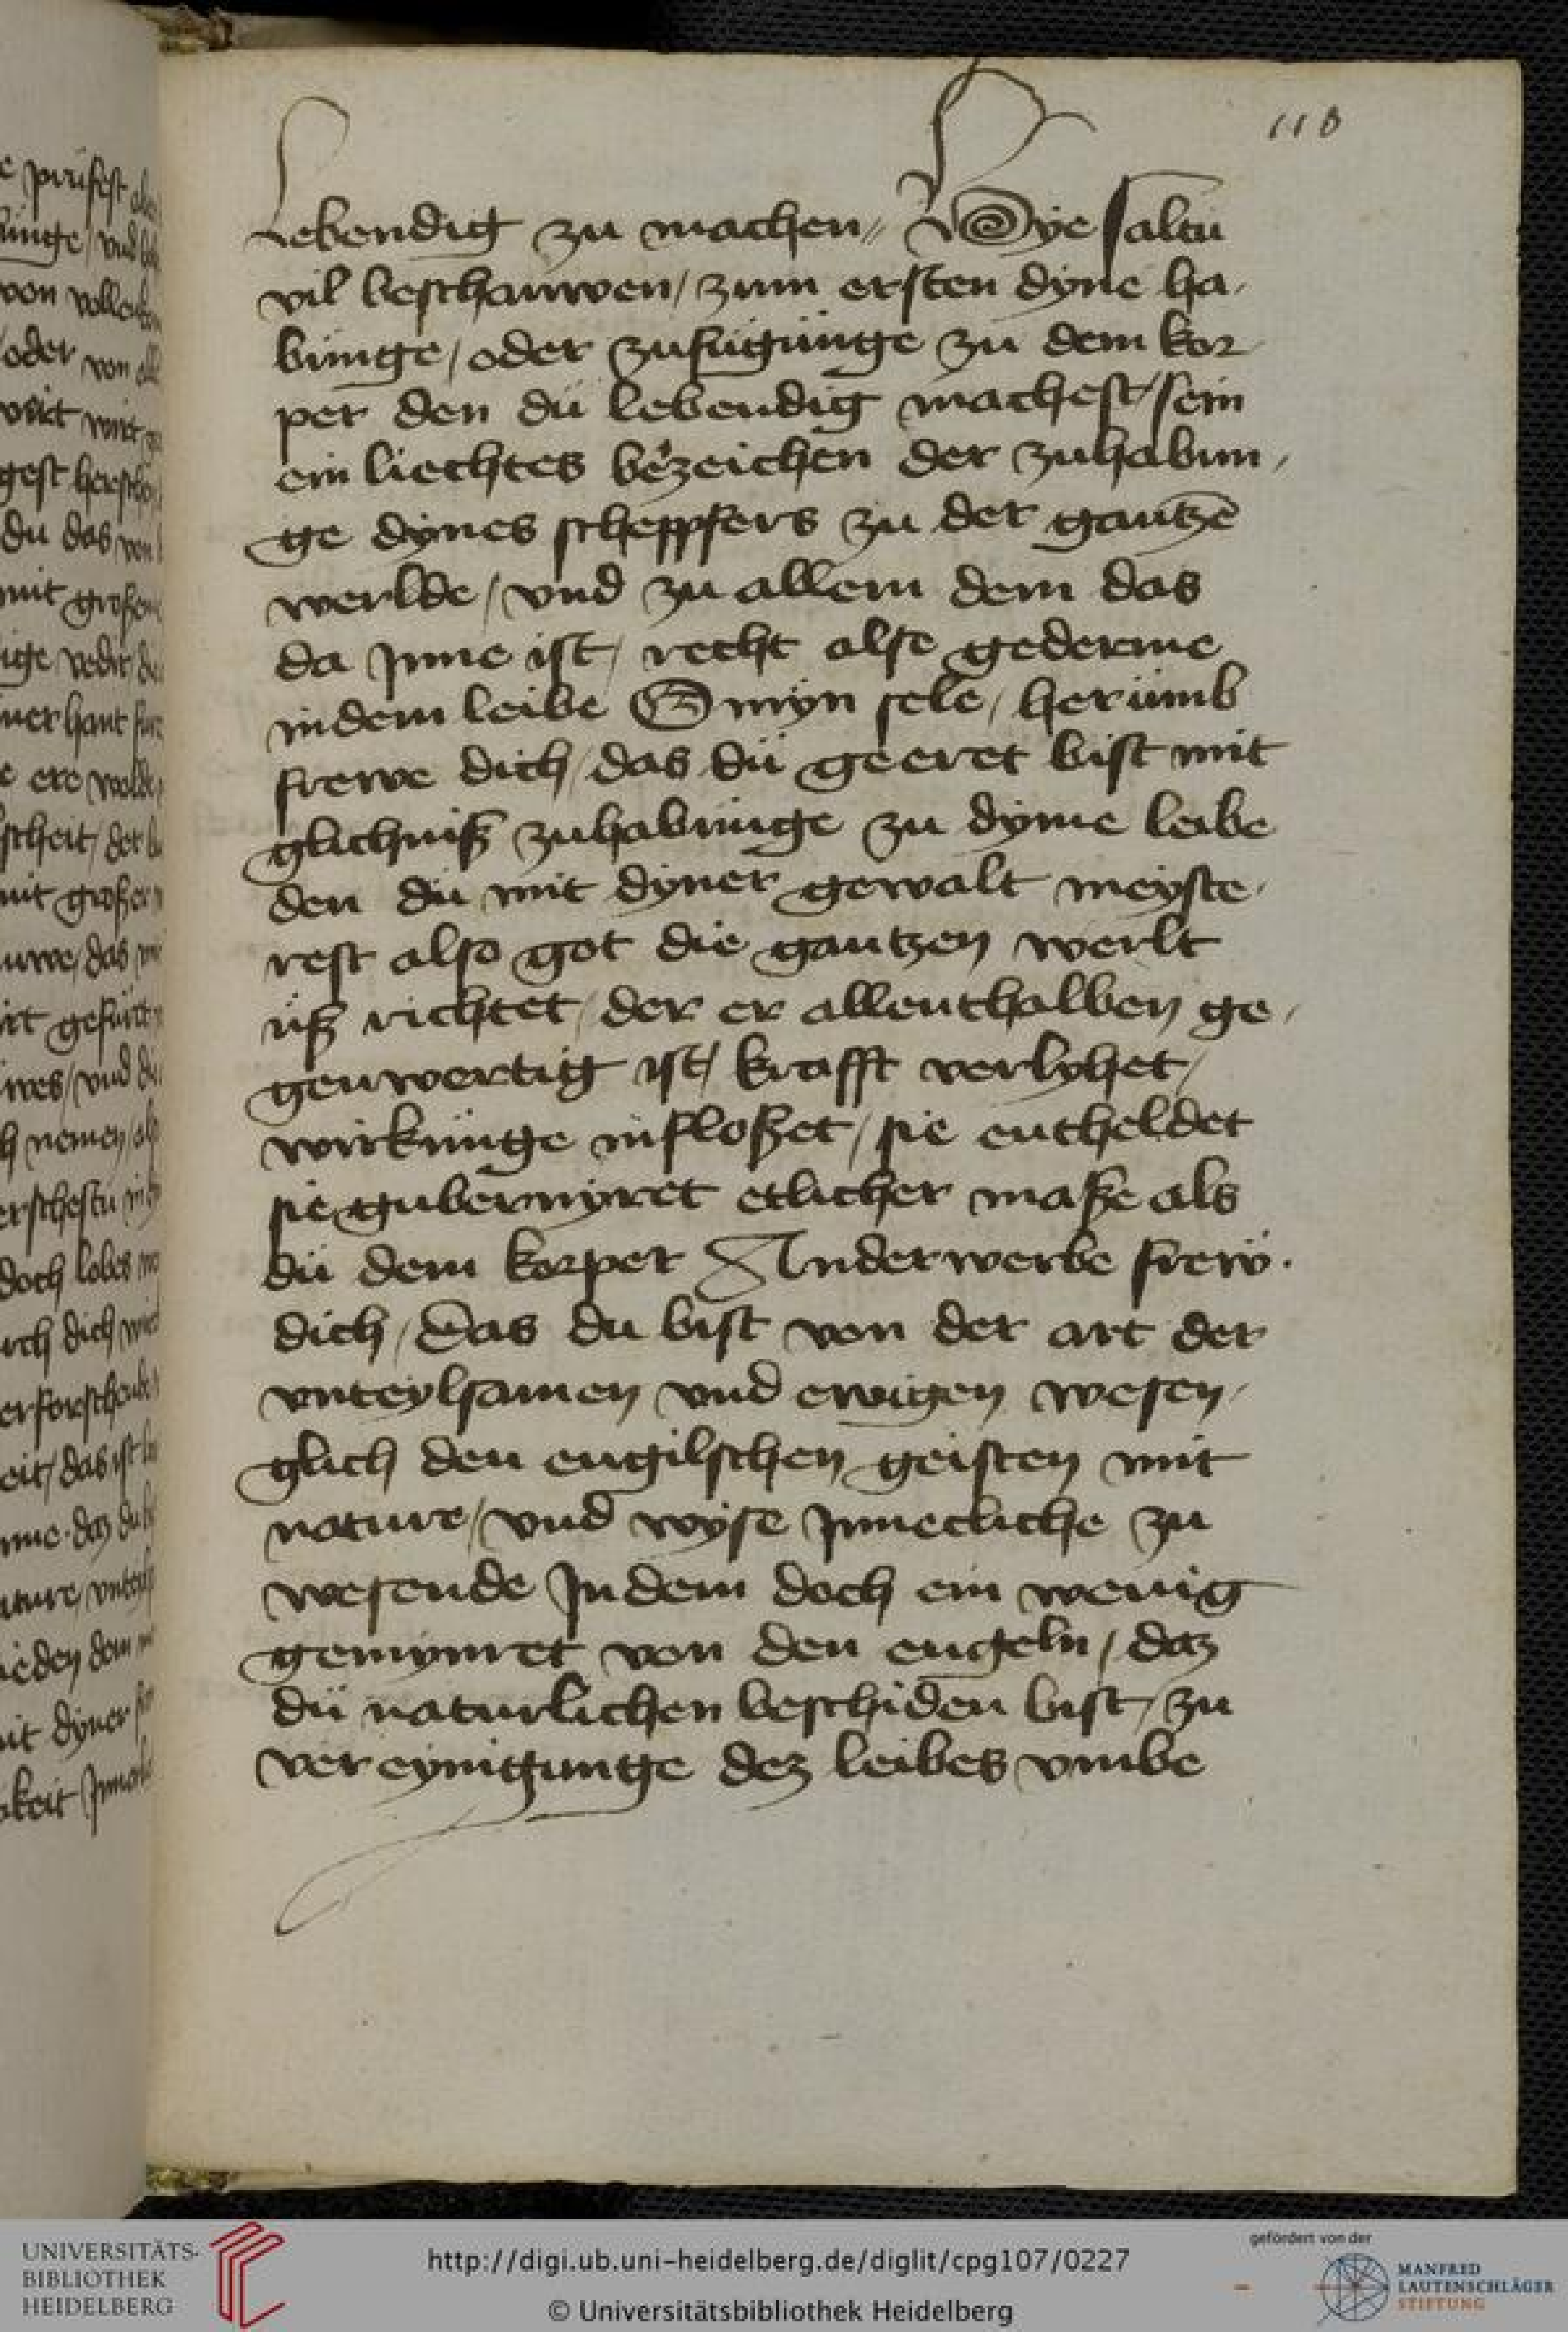 118
Lebendig zu machen// Wye saltu
vil beschauwen/ zum ersten dyne ha-
bunge/ oder zufugunge zu dem kor-
per den dü lebendig machest/ sein
ein liechtes bezeichen der zuhabun-
ge dynes scheppfers zu der gantzē
werlde/ vnd zu allem dem das
da Jnne ist/ recht alse gederme
in dem leibe O myn sele/ herümb
frewe dich/ das dü geeret bist mit
glichniß zuhabunge zu dyme leibe
den dü mit dyner gewalt meyste-
rest also got die gantzen werlt
üß richtet/ der er allenthalben ge-
genwertig ist/ krafft verlyhet/
wirkünge infloßet/ sie entheldet
sie gubernyret etlicher maße als
dü dem korper Anderwerbe frew
dich/ Das du bist von der art der
vnteylsamen vnd ewigen wesen/
glich den engilschen geisten mit
nature/ vnd wyse Jnnecliche zu
wesende Jn dem doch ein wenig
gemynret von den engeln/ daz
dü naturlichen beschiden bist/ zu
vereynigunge dez leibes vmbe
UNIVERSITÄTS-
BIBLIOTHEK
HEIDELBERG
http://digi.ub.uni-heidelberg.de/diglit/cpg107/0227
© Universitätsbibliothek Heidelberg
gefördert von der
MANFRED
LAUTENSCHLÄGER
STIFTUNG